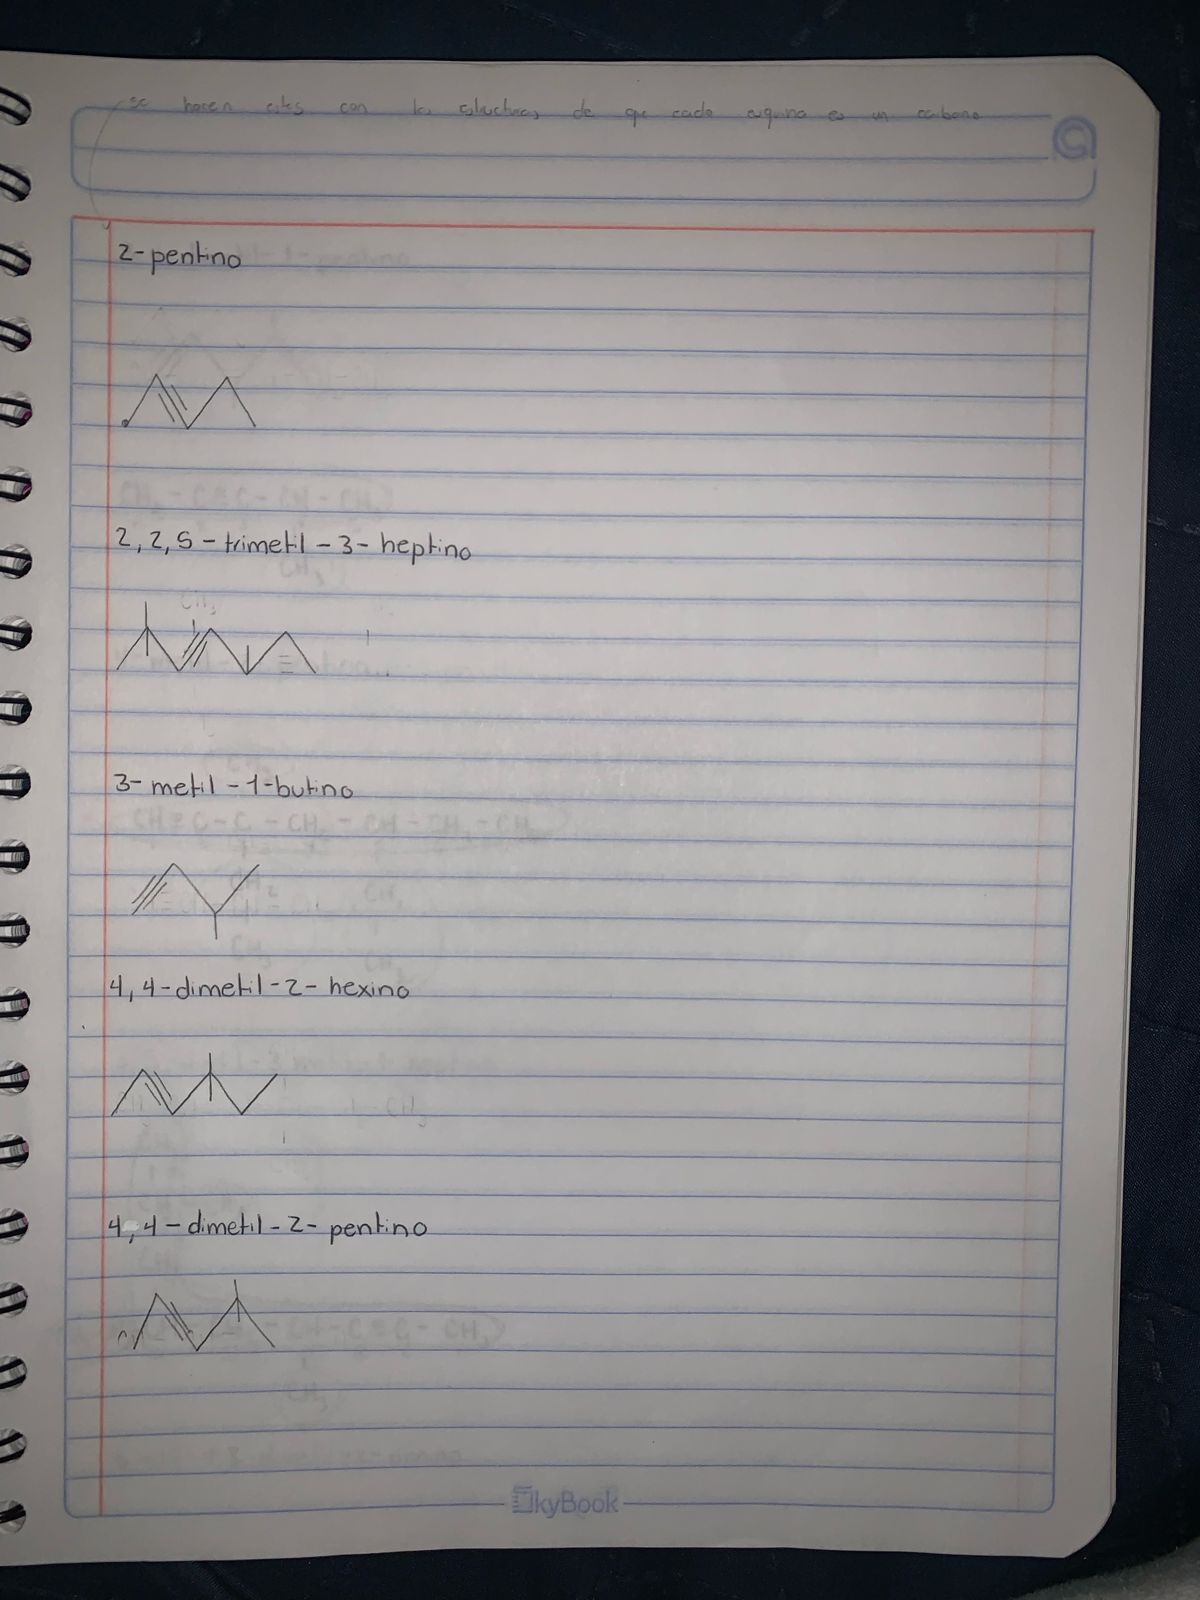 se hacen estas con las estructuras de que cada esquina es un carbono
2-pentino
2,2,5-trimetil-3-heptino
CH3
3-metil-1-butino
4,4-dimetil-2-hexino
4,4-dimetil-2-pentino
SkyBook